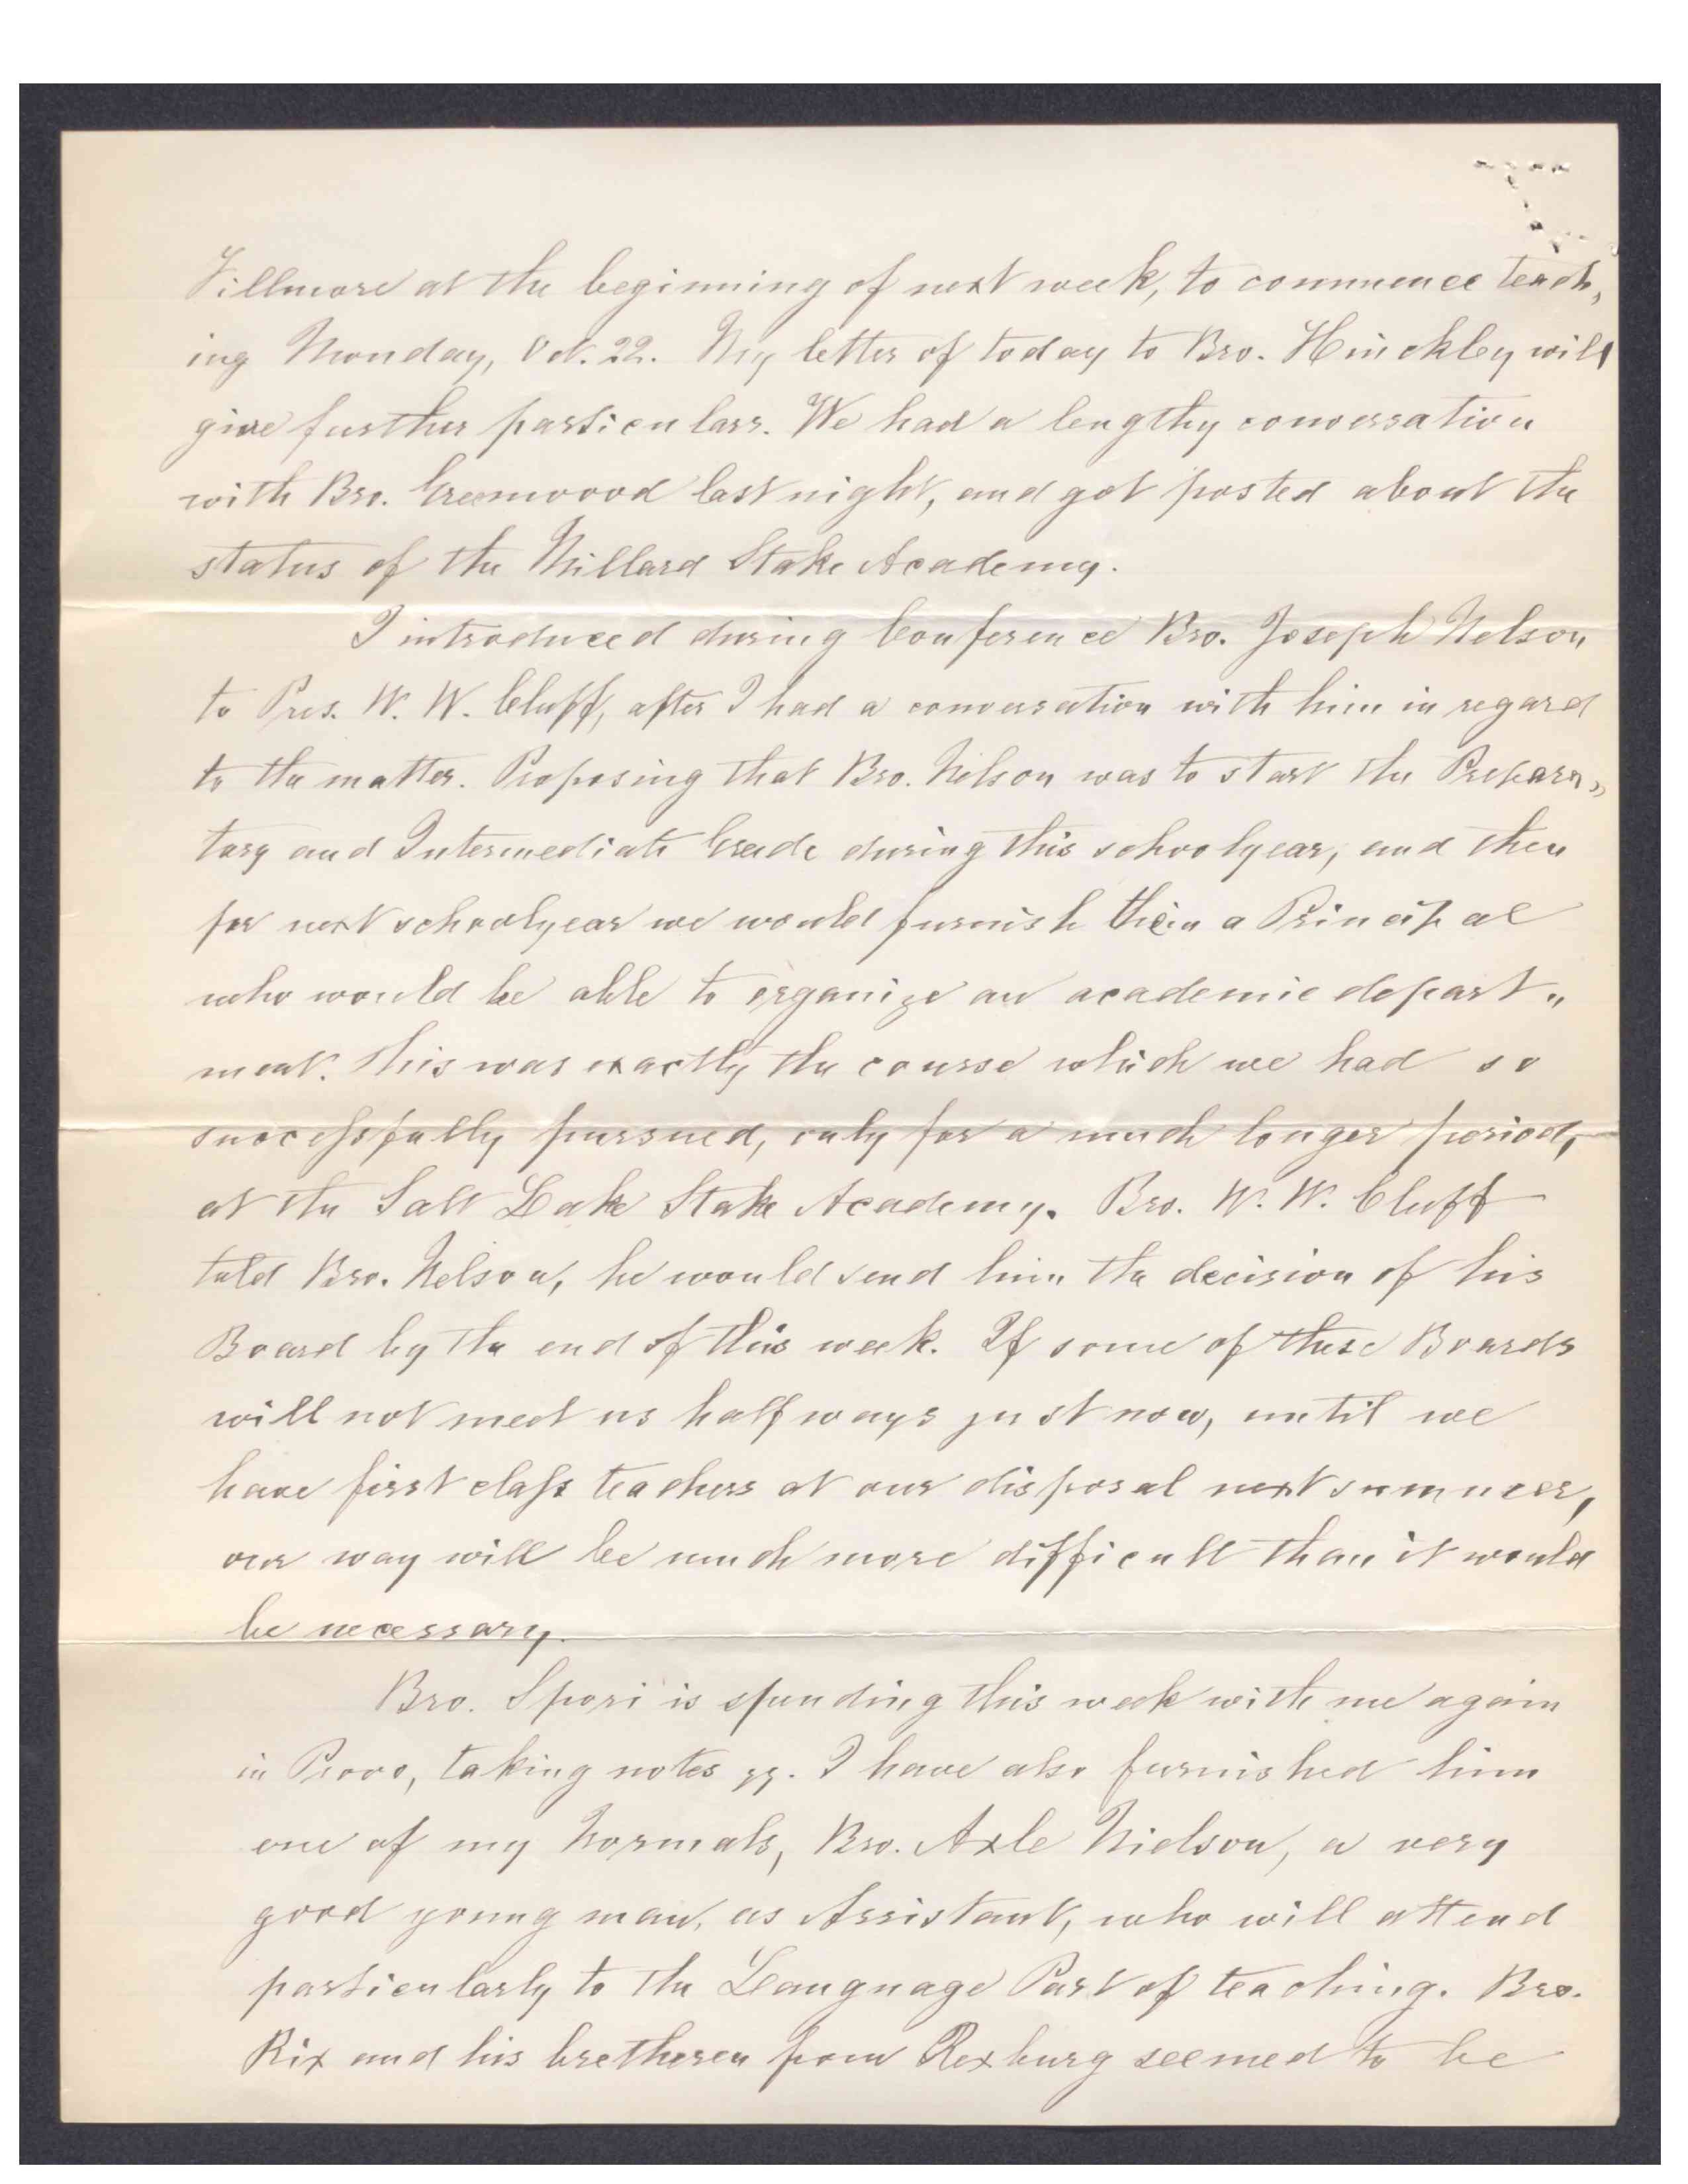 Fillmore at the beginning of next week, to commence teach,
ing Monday, Oct. 22. My letter of today to Bro. Hinckley will
give further particulars. We had a lengthy conversation
with Bro. Greenwood last night, and got posted about the
status of the Millard Stake Academy.
I introduced during Conference Bro. Joseph Nelson
to Pres. W. W. Cluff, after I had a conversation with him in regard
to the matter. Proposing that Bro. Nelson was to start the Prepara„
tory and Intermediate Grade during this schoolyear, and then
for next schoolyear we would furnish them a Principal
who would be able to organize an academic depart„
ment. This was exactly the course which we had so
successfully pursued, only for a much longer period,
at the Salt Lake Stake Academy. Bro. W. W. Cluff
told Bro. Nelson, he would send him the decision of his
Board by the end of this week. If some of these Boards
will not meet us halfways just now, until we
have first class teachers at our disposal next summer,
our way will be much more difficult than it would
be necessary.
Bro. Spori is spending this week with me again
in Provo, taking notes gg. I have also furnished him
one of my Normals, Bro. Axle Nielson, a very
good young man, as Assistant, who will attend
particularly to the Language Part of teaching. Bro.
Rix and his bretheren from Rexburg seemed to be